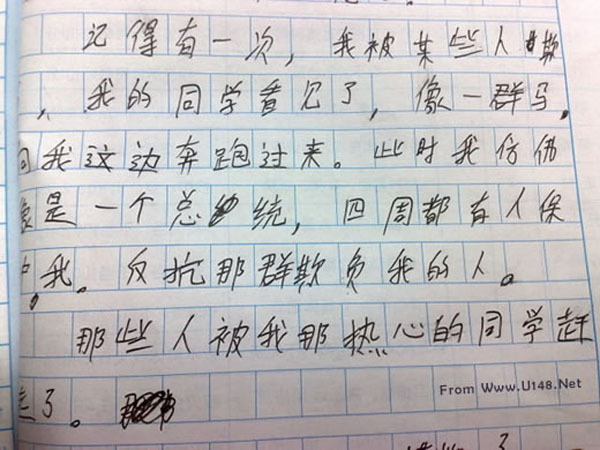 记得有一次，我被某些人欺
，我的同学看见了，像一群马，
向我这边奔跑过来。此时我仿佛
像是一个总统，四周都有人保
护我。反抗那群欺负我的人。
那些人被我那热心的同学赶
走了。
From Www.U148.Net